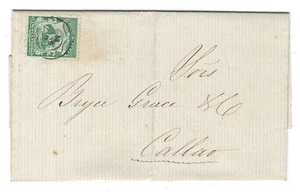 Bryce Grace & Co
Callao